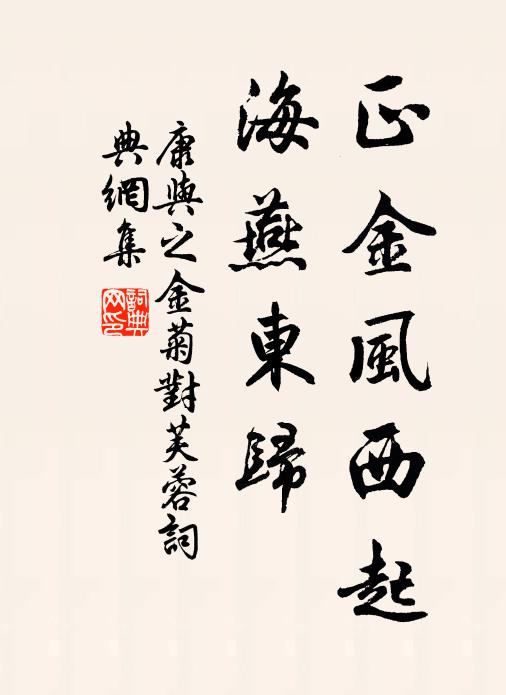 正金風西起
海燕東歸
康與之金菊對芙蓉詞
典網集
詞典
网印